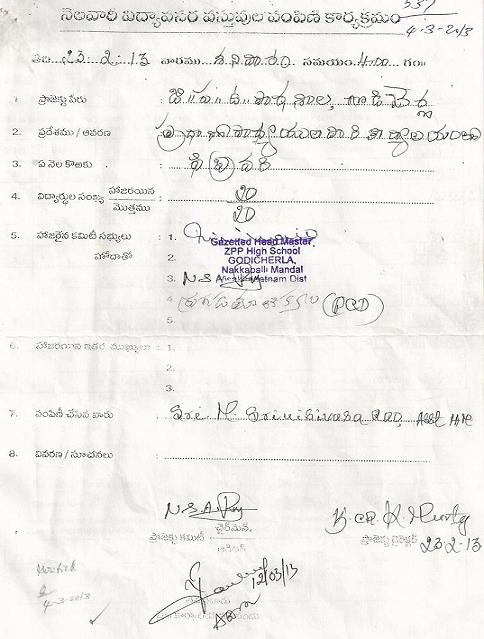 537
4-3-2013
నెలవారీ విద్యావసర వస్తువుల పంపిణీ కార్యక్రమం
తేది 23-2-13 వారము శనివారం సమయం 4.00 గం॥
1. ప్రాజెక్టు పేరు : జి.ప.ఉ. పాఠశాల, గొడిచెర్ల
2. ప్రదేశము / ఆవరణ : ప్రధానోపాధ్యాయులవారి కార్యాలయం
3. ఏ నెల కొఱకు : ఫిబ్రవరి
4. విద్యార్థుల సంఖ్య హాజరయిన : 20
మొత్తము 20
5. హాజరైన కమిటీ సభ్యులు : 1.
హోదాతో 2.
Gazetted Head Master
ZPP High School
GODICHERLA,
Nakkapalli Mandal
Visakhapatnam Dist
3.
4. (PCD)
5.
6. హాజరయిన ఇతర ముఖ్యులు : 1.
2.
3.
7. పంపిణీ చేసిన వారు : Sri M Srinivasa Rao, Asst HM
8. వివరణ / సూచనలు :
చైర్‌మెన్,
ప్రాజెక్టు కమిటీ
ప్రాజెక్టు డైరెక్టర్ 23-2-13
ఆడిటర్
Verified
4-3-2013
12/03/13